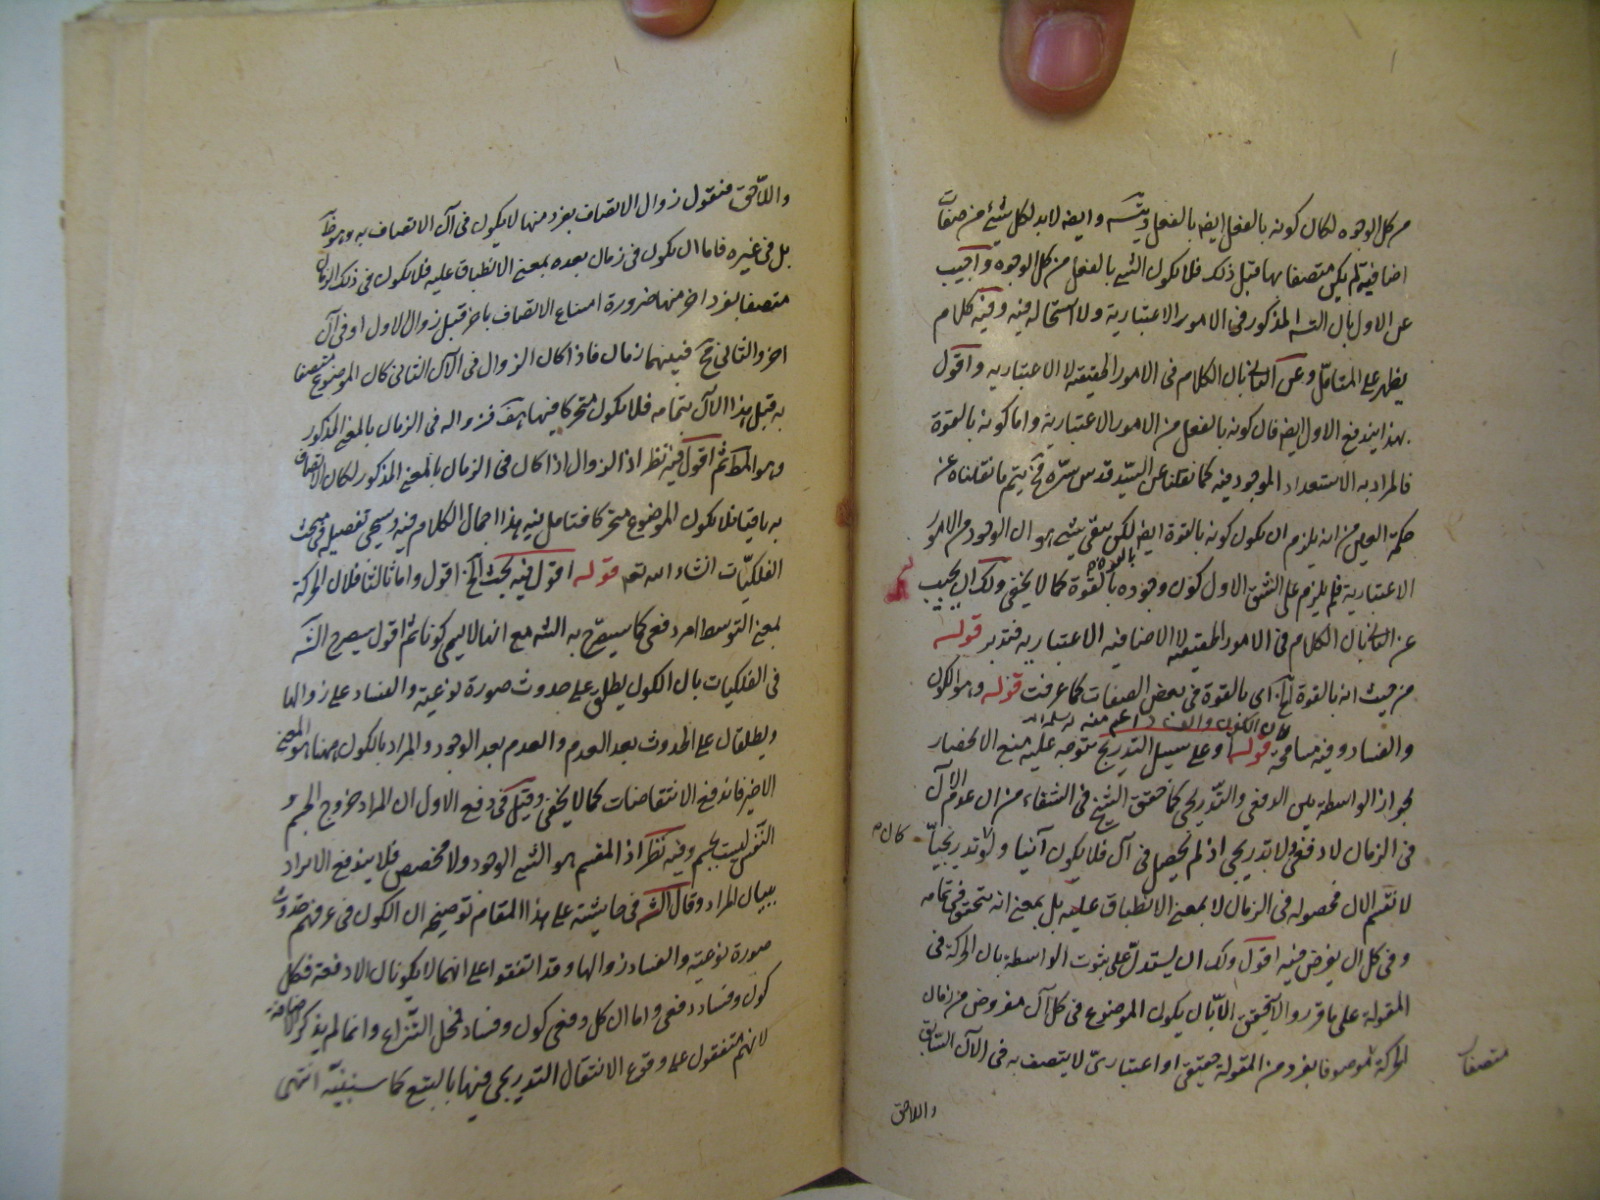 من كل الوجوه لكان كونه بالفعل ايضا بالفعل ويتسه وايضا لابد لكل شيء من صفات
اضافية لم يكن متصفا بها قبل ذلك فلا يكون الشيء بالفعل من كل الوجوه واجيب
عن الاول بان التسه المذكور في الامور الاعتبارية ولا استحالة فيه وفيه كلام
يظهر على المتامل وعن الثاني بان الكلام في الامور الحقيقية لا الاعتبارية واقول
بهذا يندفع الاول ايضا فان كونه بالفعل من الامور الاعتبارية واما كونه بالقوة
فالمراد به الاستعداد الموجود فيه كما نقلنا عن السيد قدس سره فح يتم ما نقلناه عن
حكمة العين من انه يلزم ان يكون كونه بالقوة ايضا لكن بقي شيء هو ان الوجود من الامور
الاعتبارية فلم يلزم على الشق الاول كون وجوده بالقوة كما لا يخفى ولك ان يجيب
بالقوة
عن الثاني بان الكلام في الامور الحقيقية لا الاضافية الاعتبارية فتدبر قوله
من حيث انه بالقوة الخ اي بالقوة في بعض الصفات كما عرفت قوله وهو الكون
فان الكون والفساد اعم منه
والفساد وفيه مسامحة قوله او على سبيل التدريج متوجه عليه منع الانحصار
لجواز الواسطة بين الدفعي والتدريجي كما حقق الشيخ في الشفاء من ان عدم الآن
في الزمان لا دفعي ولا تدريجي اذ لم يحصل في آن فلا يكون آنيا ولا تدريجيا
كان
لا نقسم الآن فحصوله في الزمان لا بمعنى الانطباق عليه بل بمعنى انه يتحقق في تمامه
وفي كل آن يفرض فيه اقول ولك ان يستدل على ثبوت الواسطة بان الحركة في
المقولة على ما قرروا لا يتحقق الا بان يكون الموضوع في كل آن مفروض من زمان
الحركة موصوفا بفرد من المقولة حقيقي او اعتباري لا يتصف به في الآن السابق
متصفا
واللاحق
واللاحق فنقول زوال الاتصاف بفرد منها لا يكون في آن الاتصاف به وهو ظ
بل في غيره فاما ان يكون في زمان بعده بمعنى الانطباق عليه فلا يكون في ذلك الزمان
متصفا بفرد اخر منها ضرورة امتناع الاتصاف باخر قبل زوال الاول او في آن
اخر والثاني فح فبينهما زمان فاذا كان الزوال في الآن الثاني كان الموضوع متصفا
به قبل هذا الآن بتمامه فلا يكون متحركا فيها هف فزواله في الزمان بالمعنى المذكور
وهو المط ثم اقول فيه نظر اذ الزوال اذا كان في الزمان بالمعنى المذكور لكان الاتصاف
به باقيا فلا يكون الموضوع متحركا فتامل فيه هذا اجمال الكلام فيه وسيجئ تفصيله في بحث
الفلكيات انشاء الله تعه قوله اقول فيه بحث الخ اقول واما ثالثا فلان الحركة
بمعنى التوسط امر دفعي كما سيصرح به الشه مع انها لا يسمى كونا ثم اقول سيصرح الشه
في الفلكيات بان الكون يطلق على حدوث صورة نوعية والفساد على زوالها
ويطلقان على الحدوث بعد العدم والعدم بعد الوجود والمراد بالكون ههنا هو المعنى
الاخير فاندفع الانتقاضات كما لا يخفى وقيل في دفع الاول ان المراد خروج الجسم و
النفس ليست بجسم وفيه نظر اذ المقسم هو الشيء الوجود ولا مخصص فلا يندفع الايراد
ببيان المراد وقال الشه في حاشيته على هذا المقام توضيحه ان الكون في عرفهم حدوث
صورة نوعية والفساد زوالها وقد اتفقوا على انهما لا يكونان الا دفعة فكل
كون وفساد دفعي واما ان كل دفعي كون وفساد فمحل النزاع وانما لم يذكر الاضافة
لانهم متفقون على وقوع الانتقال التدريجي فيها بالتبع كما سنبينه انتهى